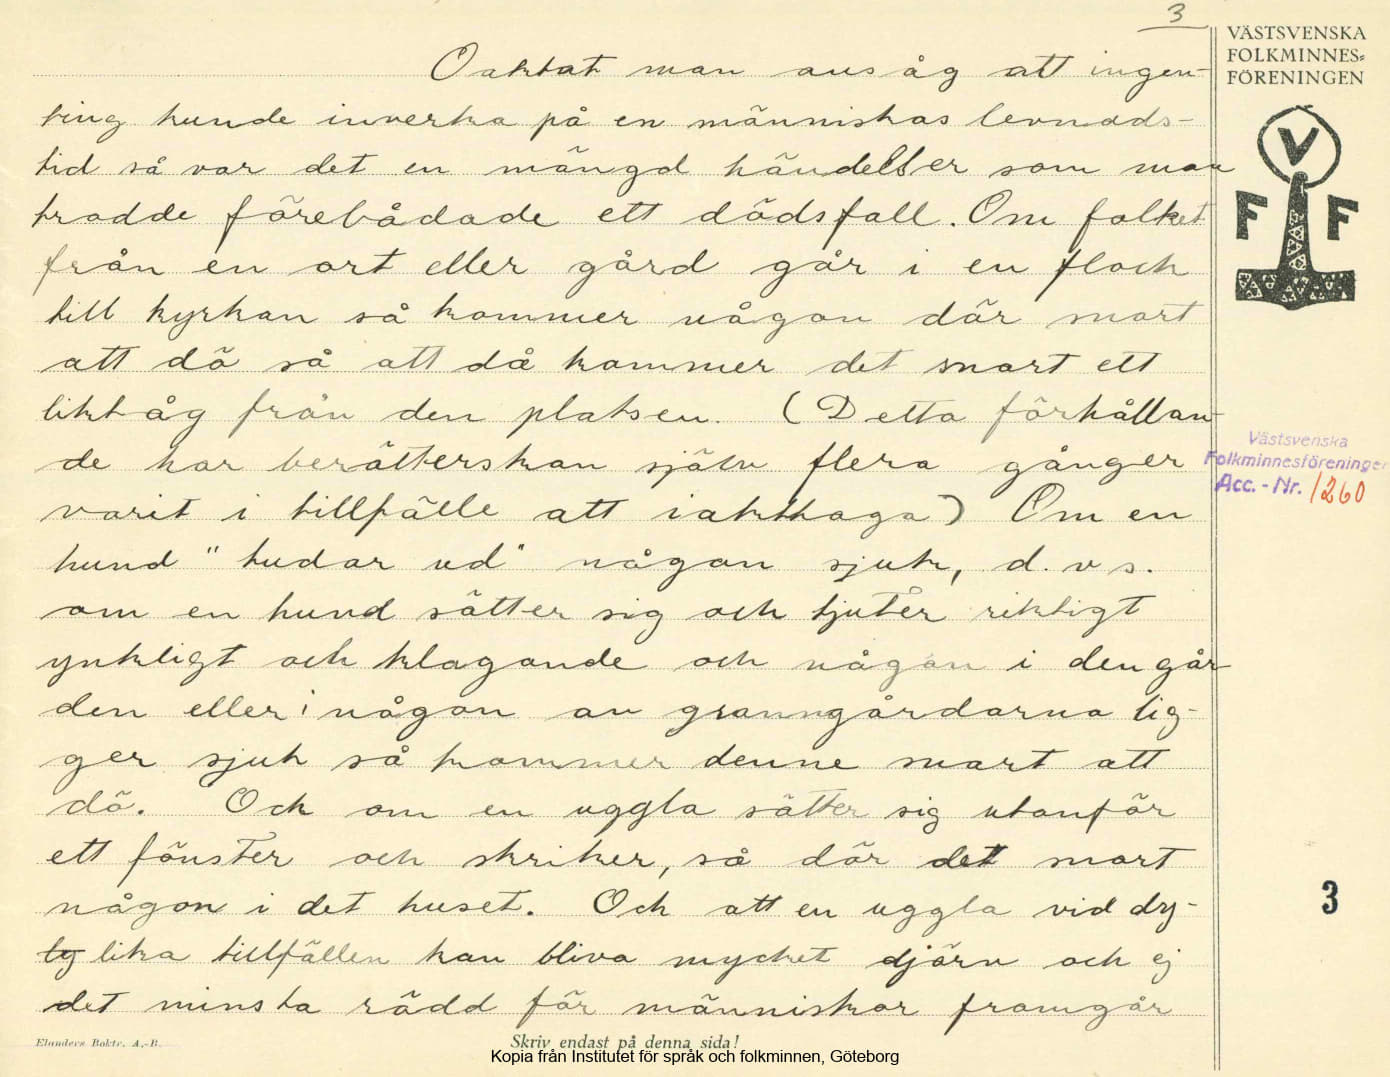 3
VÄSTSVENSKA
FOLKMINNES-
FÖRENINGEN
V
F F
Oaktat man ansåg att ingen-
ting kunde inverka på en människas levnads-
tid så var det en mängd händelser som man
trodde förebådade ett dödsfall. Om folket
från en ort eller gård går i en flock
till kyrkan så kommer någon där snart
att dö så att då kommer det snart ett
liktåg från den platsen. (Detta förhållan-
de har berätterskan själv flera gånger
varit i tillfälle att iakttaga) Om en
hund "tudar ud" någon sjuk, d.v s.
om en hund sätter sig och tjuter riktigt
ynkligt och klagande och någon i den går
den eller i någon av granngårdarna lig-
ger sjuk så kommer denne snart att
dö. Och om en uggla sätter sig utanför
ett fönster och skriker, så dör det snart
någon i det huset. Och att en uggla vid dy-
ly lika tillfällen kan bliva mycket djärv och ej
det minsta rädd för människor framgår
Västsvenska
Folkminnesföreningen
Acc. - Nr. 1260
3
Elanders Boktr. A.-B.
Skriv endast på denna sida!
Kopia från Institutet för språk och folkminnen, Göteborg